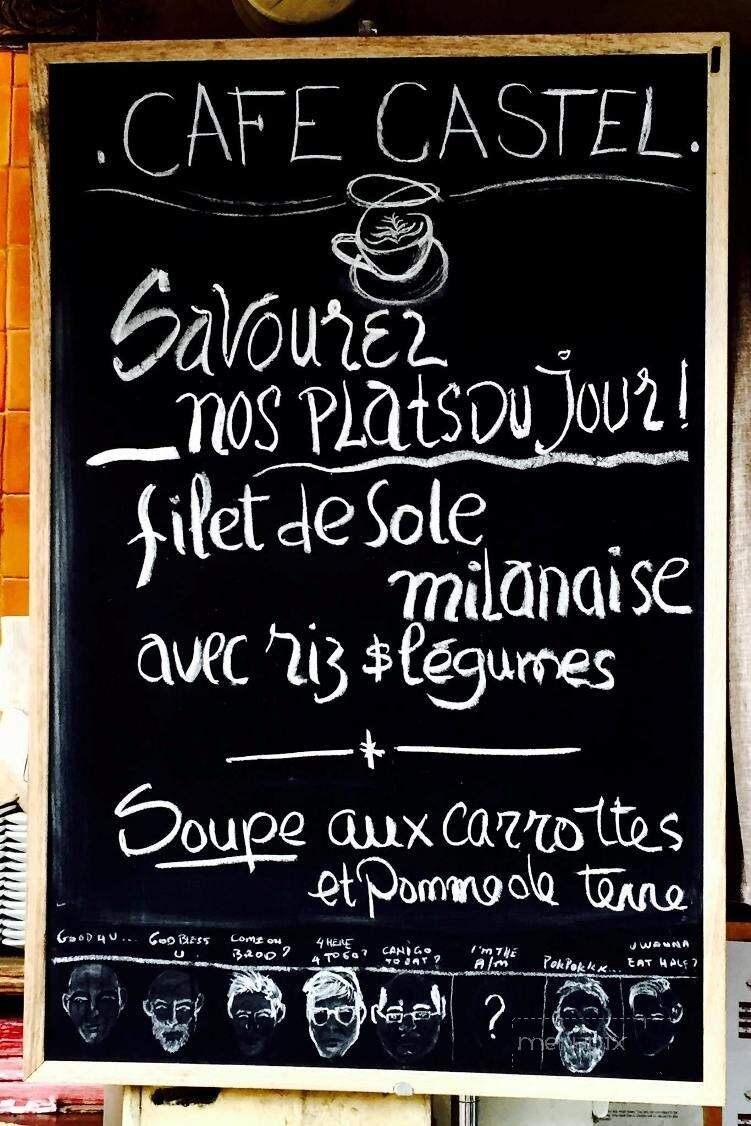 . CAFE CASTEL.
Savourez
nos PLats DU Jour!
filet de Sole
milanaise
avec riz $ légumes
Soupe aux carrottes
et Pomme de terre
GOOD 4 U...
GOD BLESS
U.
COME ON
BROD?
4 HERE
4 TO GO?
CAN I GO
TO DAT?
I'M THE
A/M
?
POKPOKKX...
U WANNA
EAT HALF?
menupix